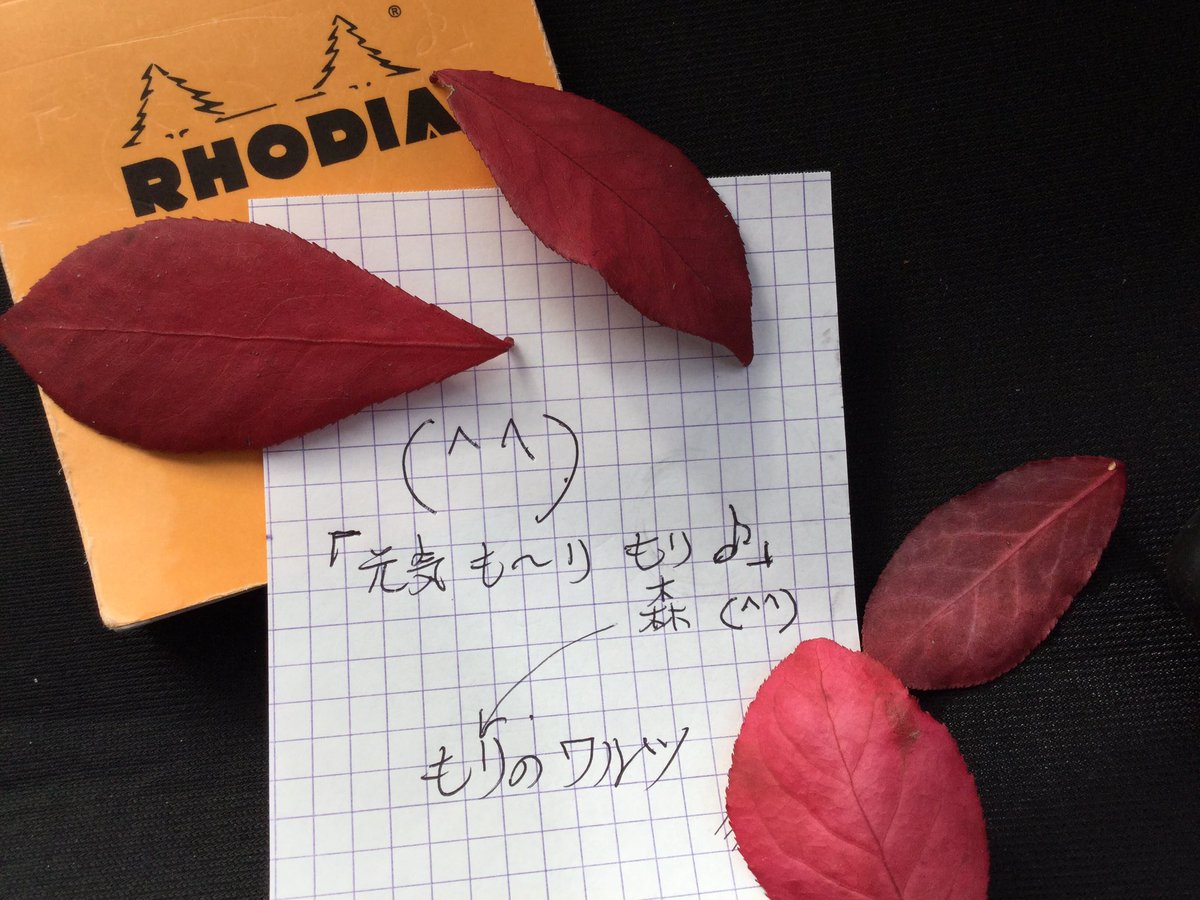 RHODIA®
(^^)
「元気も〜り もり♪」
森 (^^)
もりのワルツ